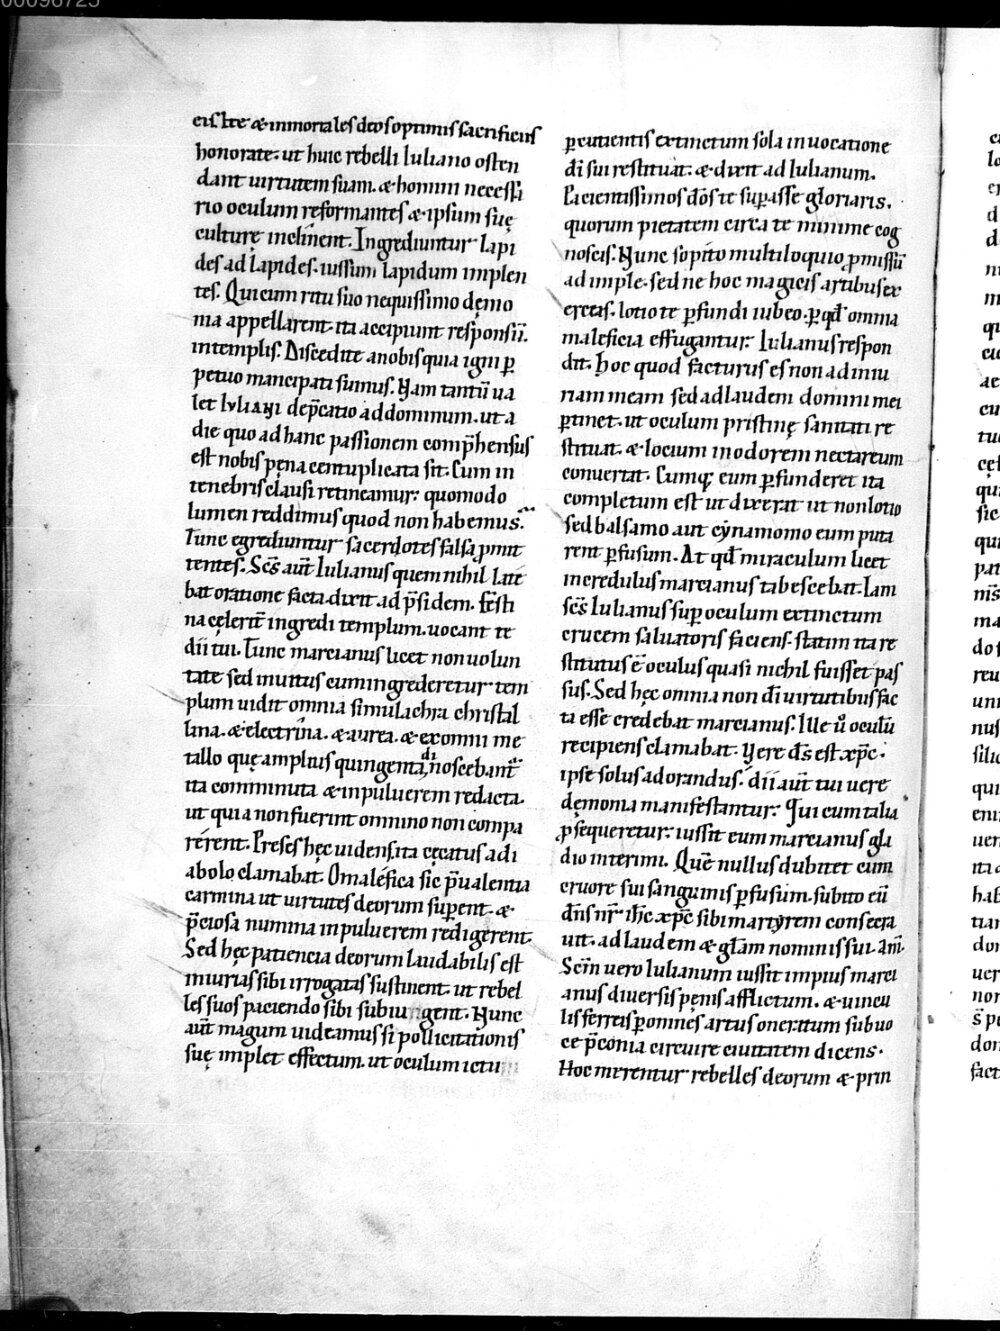 00096725
eis ite & inmortales deos optimis sacrificiis
honorate. ut huic rebelli Iuliano osten
dant uirtutem suam. & homini necessa
rio oculum reformantes & ipsum suę
culturę inclinent. Ingrediuntur lapi
des ad lapides. iussum lapidum implen
tes. Qui cum ritu suo nequissimo dęmo
nia appellarent. ita accipiunt responsū.
in templis. Discedite a nobis quia igni ꝑ
petuo mancipati sumus. Nam tantū ua
let IVLIANI dep̄catio ad dominum. ut a
die quo ad hanc passionem comp̄hensus
est nobis pęna centuplicata sit. Cum in
tenebris clausi retineamur. quomodo
lumen reddimus quod non habemus.
Tunc egrediuntur sacerdotes falsa ꝓmit
tentes. Scs̄ aūt Iulianus quem nihil late
bat oratione facta dixit ad p̄sidem. Festi
na celerit̄ ingredi templum. uocant te
dii tui. Tunc marcianus licet non uolun
tate sed inuitus cum ingrederetur tem
plum uidit omnia simulachra christal
lina. & electrina. & aurea. & ex omni me
tallo quę amplius quingenta dinoscebant̄
ita comminuta & in puluerem redacta.
ut quia non fuerint omnino non compa
rerent. Preses hęc uidens. ita cęcatus a di
abolo clamabat. O malefica sic p̄ualentia
carmina ut uirtutes deorum suꝑent. &
p̄ciosa numina in puluerem redigerent.
Sed hęc patiencia deorum laudabilis est
iniurias sibi irrogatas sustinent. ut rebel
les suos paciendo sibi subiu gent. Nunc
aūt magum uideamus si pollicitationis
suę implet effectum. ut oculum ictu
ꝑcutientis extinctum sola inuocatione
dī sui restituat. & dixit ad Iulianum.
Pacientissimos dōs te suꝑasse gloriaris.
quorum pietatem circa te minime cog
noscis. Nunc sopito multiloquio ꝓmissū
adimple. sed ne hoc magicis artibus ex
erceas. lotio te ꝑfundi iubeo. ꝑ qd̄ omnia
maleficia effugantur. Iulianus respon
dit. Hoc quod facturus es non ad iniu
riam meam sed ad laudem domini mei
ꝑtinet. ut oculum pristinę sanitati re
stituat. & locium in odorem nectareum
conuertat. Cumq; eum ꝑfunderet ita
completum est ut dixerat ut non lotio
sed balsamo aut cynamomo eum puta
rent ꝑfusum. At qd̄ miraculum licet
incredulus marcianus tabescebat. Iam
scs̄ Iulianus suꝑ oculum extinctum
crucem saluatoris faciens. statim ita re
stitutus ē oculus quasi nichil fuisset pas
sus. Sed hęc omnia non dī uirtutibus fac
ta esse credebat marcianus. Ille ū oculū
recipiens clamabat. Vere ds̄ est xp̄c.
ipse solus adorandus. dii aūt tui uere
dęmonia manifestantur. Qui cum talia
ꝓsequeretur. iussit eum marcianus gla
dio interimi. Quē nullus dubitet eum
cruore sui sanguinis ꝑfusum. subito eū
dn̄s nr̄ ih̄c xp̄c sibi martyrem consecra
uit. ad laudem & gl̄am nominis sui. am̄.
Scm̄ uero Iulianum iussit impius marci
anus diuersis pęnis afflictum. & uincu
lis ferreis ꝑ omnes artus oneratum sub uo
ce p̄conia circuire ciuitatem dicens.
Hoc merentur rebelles deorum & prin